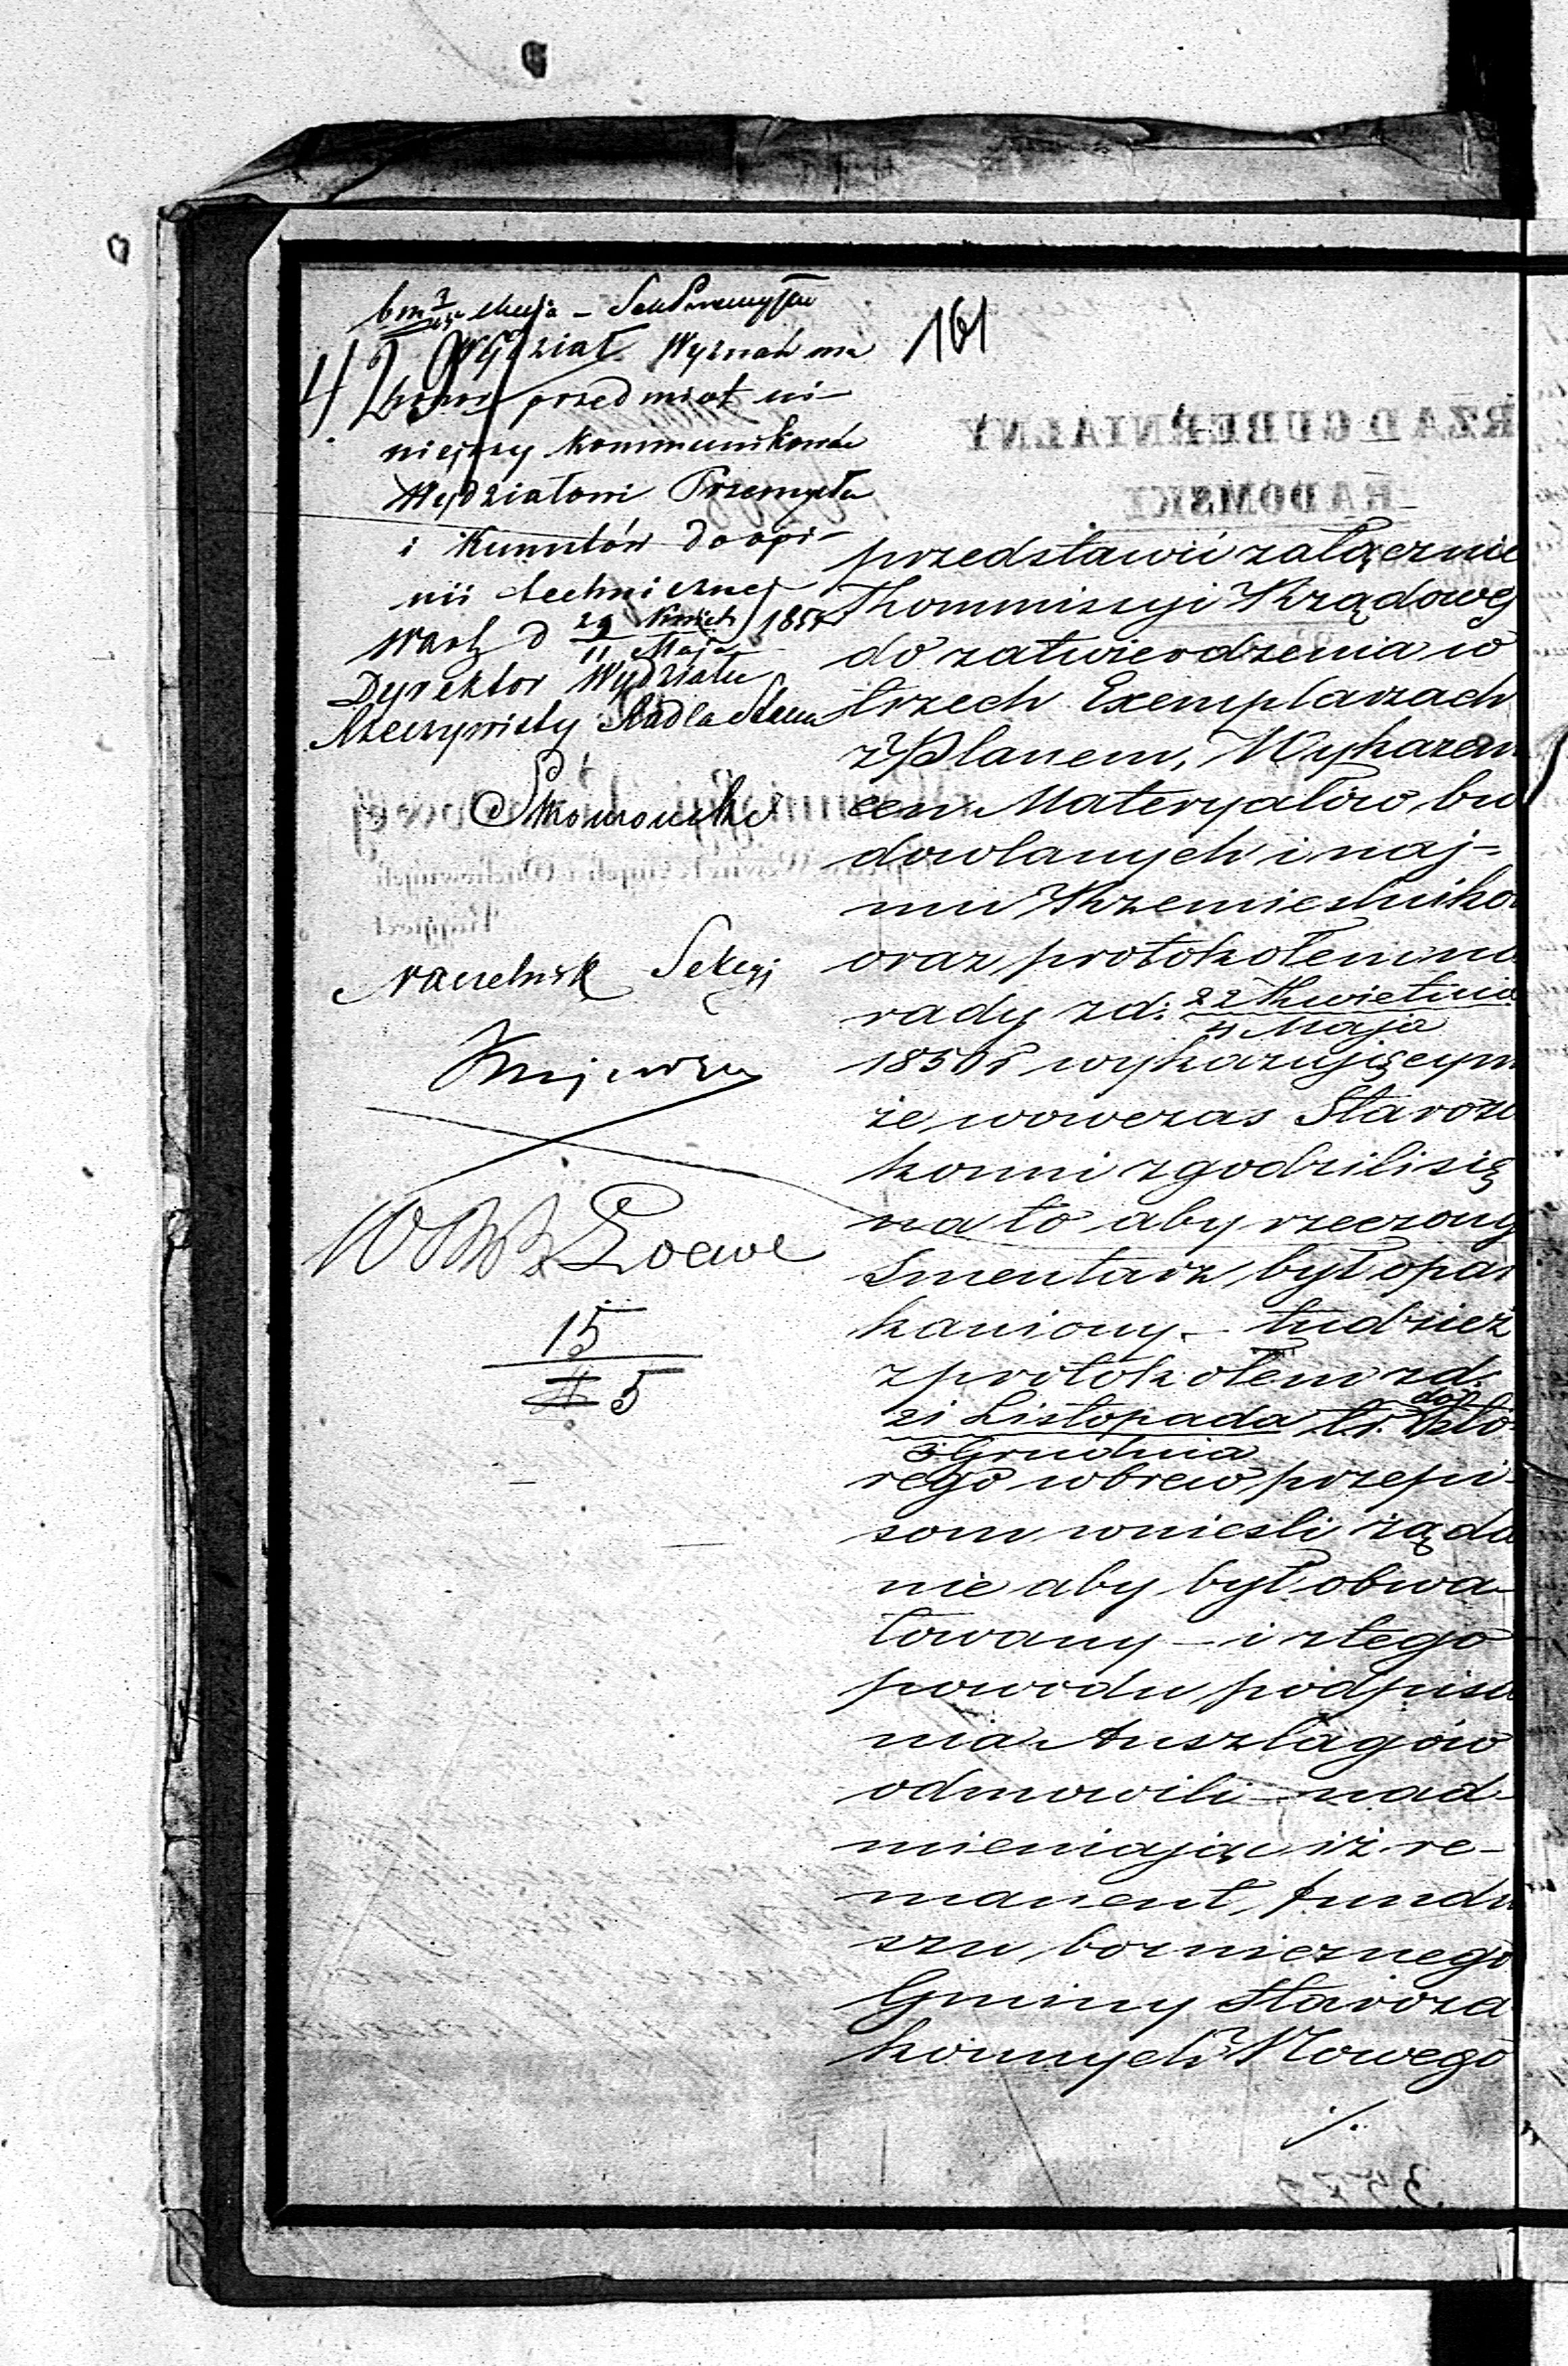 161
429
Wydział Wyznań ma
honor przedmiot ni-
niejszy kommunikować
Wydziałowi Przemysłu
i Kunsztów do opi-
nii technicznej
Warsz d 29 Kwiet / 11 Maja 1857
Dyrektor Wydziału
Rzeczywisty Radca Stanu
Naczelnik Sekcyi
Loewe
15
5
RZĄD GUBERNIALNY
RADOMSKI
przedstawić załącznie
Kommissyi Rządowej
do zatwierdzenia w
trzech Exemplarzach
z Planem, Wykazem
cen Materyałów bu
dowlanych i naj-
mu Rzemieślników
oraz protokołem na
rady z d: 22 Kwietnia / 4 Maja
1850 r wykazującym
że wowczas Staroza
konni zgodzili się
na to aby rzeczony
Smentarz był opar
kaniony – tudzież
z protokołem z d.
21 Listopada / 3 Grudnia t. r. któ
rego wbrew przepi-
som wnieśli żąda
nie aby był obwa-
łowany – i z tego
powodu podpisa
nia Anszlagów
odmówili nad-
mieniając iż re-
manent fundu
szu bożniczego
Gminy Staroza
konnych Nowego
./.